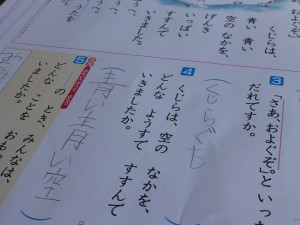 くじらは、
青い 青い
空の なかを、
げんき
いっぱい
すすんで
いきました。
3
「さあ、およぐぞ。」と いっ
だれですか。
くじらぐも
4
くじらは、空の なかを、
どんな ようすで すすんで
いきましたか。
青い青い空
5
の とき、みんなは、
どんな ことを おも
いましたか。